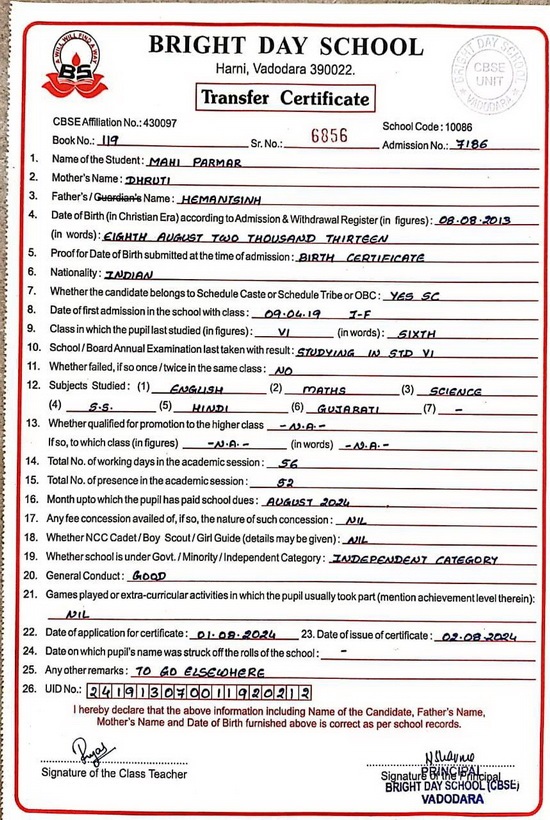 A WILL WILL FIND A WAY
BS
BRIGHT DAY SCHOOL
Harni, Vadodara 390022.
Transfer Certificate
BRIGHT DAY SCHOOL
CBSE
UNIT
VADODARA
CBSE Affiliation No.: 430097
School Code : 10086
Book No.: 119 Sr. No.: 6856 Admission No.: 7186
1. Name of the Student : MAHI PARMAR
2. Mother's Name : DHRUTI
3. Father's / Guardian's Name : HEMANTSINH
4. Date of Birth (in Christian Era) according to Admission & Withdrawal Register (in figures) : 08.08.2013
(in words) : EIGHTH AUGUST TWO THOUSAND THIRTEEN
5. Proof for Date of Birth submitted at the time of admission : BIRTH CERTIFICATE
6. Nationality : INDIAN
7. Whether the candidate belongs to Schedule Caste or Schedule Tribe or OBC : YES SC
8. Date of first admission in the school with class : 09.04.19 I-F
9. Class in which the pupil last studied (in figures) : VI (in words) : SIXTH
10. School / Board Annual Examination last taken with result : STUDYING IN STD VI
11. Whether failed, if so once / twice in the same class : NO
12. Subjects Studied : (1) ENGLISH (2) MATHS (3) SCIENCE
(4) S.S. (5) HINDI (6) GUJARATI (7) -
13. Whether qualified for promotion to the higher class -N.A.-
If so, to which class (in figures) -N.A.- (in words) -N.A.-
14. Total No. of working days in the academic session : 56
15. Total No. of presence in the academic session : 52
16. Month upto which the pupil has paid school dues : AUGUST 2024
17. Any fee concession availed of, if so, the nature of such concession : NIL
18. Whether NCC Cadet / Boy Scout / Girl Guide (details may be given) : NIL
19. Whether school is under Govt. / Minority / Independent Category : INDEPENDENT CATEGORY
20. General Conduct : GOOD
21. Games played or extra-curricular activities in which the pupil usually took part (mention achievement level therein) :
NIL
22. Date of application for certificate : 01.08.2024 23. Date of issue of certificate : 02.08.2024
24. Date on which pupil's name was struck off the rolls of the school : -
25. Any other remarks : TO GO ELSEWHERE
26. UID No.: 241913070011920212
I hereby declare that the above information including Name of the Candidate, Father's Name,
Mother's Name and Date of Birth furnished above is correct as per school records.
Signature of the Class Teacher
Signature of the Principal
PRINCIPAL
BRIGHT DAY SCHOOL (CBSE)
VADODARA